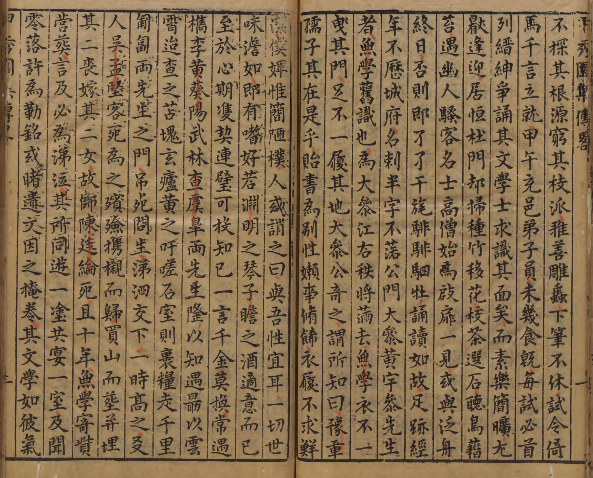 不探其根源窮其枝派雅善雕蟲下筆不休試令倚
馬千言立就甲午充邑弟子員未幾食餼每試必首
列縉紳爭誦其文學士求識其面矣而素樂簡曠尢
厭逢迎居恒杜門却掃種竹移花核茶選石聽鳥藉
苔遇幽人騷客名士高僧始為啟扉一見或與泛舟
終日否則即孑孑干旄騑騑駟牡誦讀如故足跡經
年不歷城府名刺半字不落公門大叅黃宇叅先生
者魚學舊識也為大叅江右秩將滿去魚學衣不一
曳其門足不一履其地大叅公奇之謂所知曰豫章
孺子其在是乎貽書為別性嬾事脩飾衣履不求鮮
潔僕婢惟簡陋樸人或誚之曰與吾性宜耳一切世
味澹如即有嗜好若淵明之琴子瞻之酒適意而已
至於心期雙契連璧可投知己一言千金莫換常遇
檇李黃葵陽武林查虞臯兩先生隆以知遇最以雲
霄迨查之苫塊玄廬黃之吁嗟石室則裹糧走千里
匍匐兩先生之門吊死問生涕泗交下一時高之友
人吳孟堅客死為之殯殮攜櫬而歸買山而塟并埋
其二喪嫁其二女故師陳廷綸死且十年魚學寄貲
營塟言及必為涕泣其所同遊一塗共宴一室及聞
零落許為勒銘或睹遺文因之掩卷其文學如彼氣